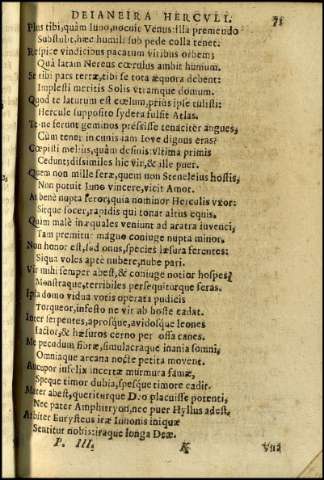 DEIANEIRA HERCVLI. 71
Plus tibi, quàm Iuno, nocuit Venus: illa premendo
Substulit: hæc humili sub pede colla tenet.
Respice vindicibus pacatum viribus orbem;
Quà latam Nereus cœrulus ambit humum.
Se tibi pars terræ, tibi se tota æquora debent:
Implesti meritis Solis vtramque domum.
Quod te laturum est cœlum, priùs ipse tulisti:
Hercule supposito sydera fulsit Atlas.
Te-ne ferunt geminos pressisse tenaciter angues,
Cùm tener in cunis iam Ioue dignus eras?
Cœpisti meliùs, quàm desinis: vltima primis
Cedunt; dissimiles hic vir, & ille puer.
Quem non mille feræ, quem non Steneleius hostis,
Non potuit Iuno vincere, vicit Amor.
At benè nupta feror, quia nominor Herculis vxor:
Sitque socer, rapidis qui tonat altus equis.
Quàm malè inæquales veniunt ad aratra iuuenci,
Tam premitur magno coniuge nupta minor.
Non honor est, sed onus, species læsura ferentes:
Siqua voles aptè nubere, nube pari.
Vir mihi semper abest, & coniuge notior hospes;
Monstraque, terribiles persequiturque feras.
Ipsa domo vidua votis operata pudicis
Torqueor, infesto ne vir ab hoste cadat.
Inter serpentes, aprosque, auidosque leones
Iactor, & hæsuros cerno per ossa canes.
Me pecudum fibræ, simulacraque inania somni,
Ominaque arcana nocte petita mouent.
Aucupor infelix incertæ murmura famæ,
Speque timor dubia, spesque timore cadit.
Mater abest, queriturque Deo placuisse potenti,
Nec pater Amphitryon, nec puer Hyllus adest,
Arbiter Eurystheus iræ Iunonis iniquæ
Sentitur nobis: iraque longa Deæ.
P. III. K Vna